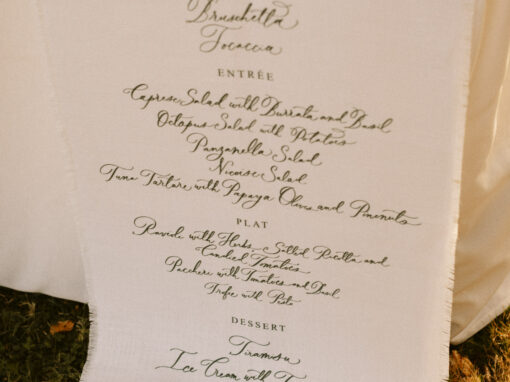 Bruschetta
Focaccia
ENTRÉE
Caprese Salad with Burrata and Basil
Octopus Salad with Potatoes
Panzanella Salad
Nicoise Salad
Tuna Tartare with Papaya Olives and Pimenuts
PLAT
with Herbs, Salted Ricotta and
Candied Tomatoes
Paccheri with Tomatoes and Basil
Trofie with Pesto
DESSERT
Tiramisu
Ice Cream with